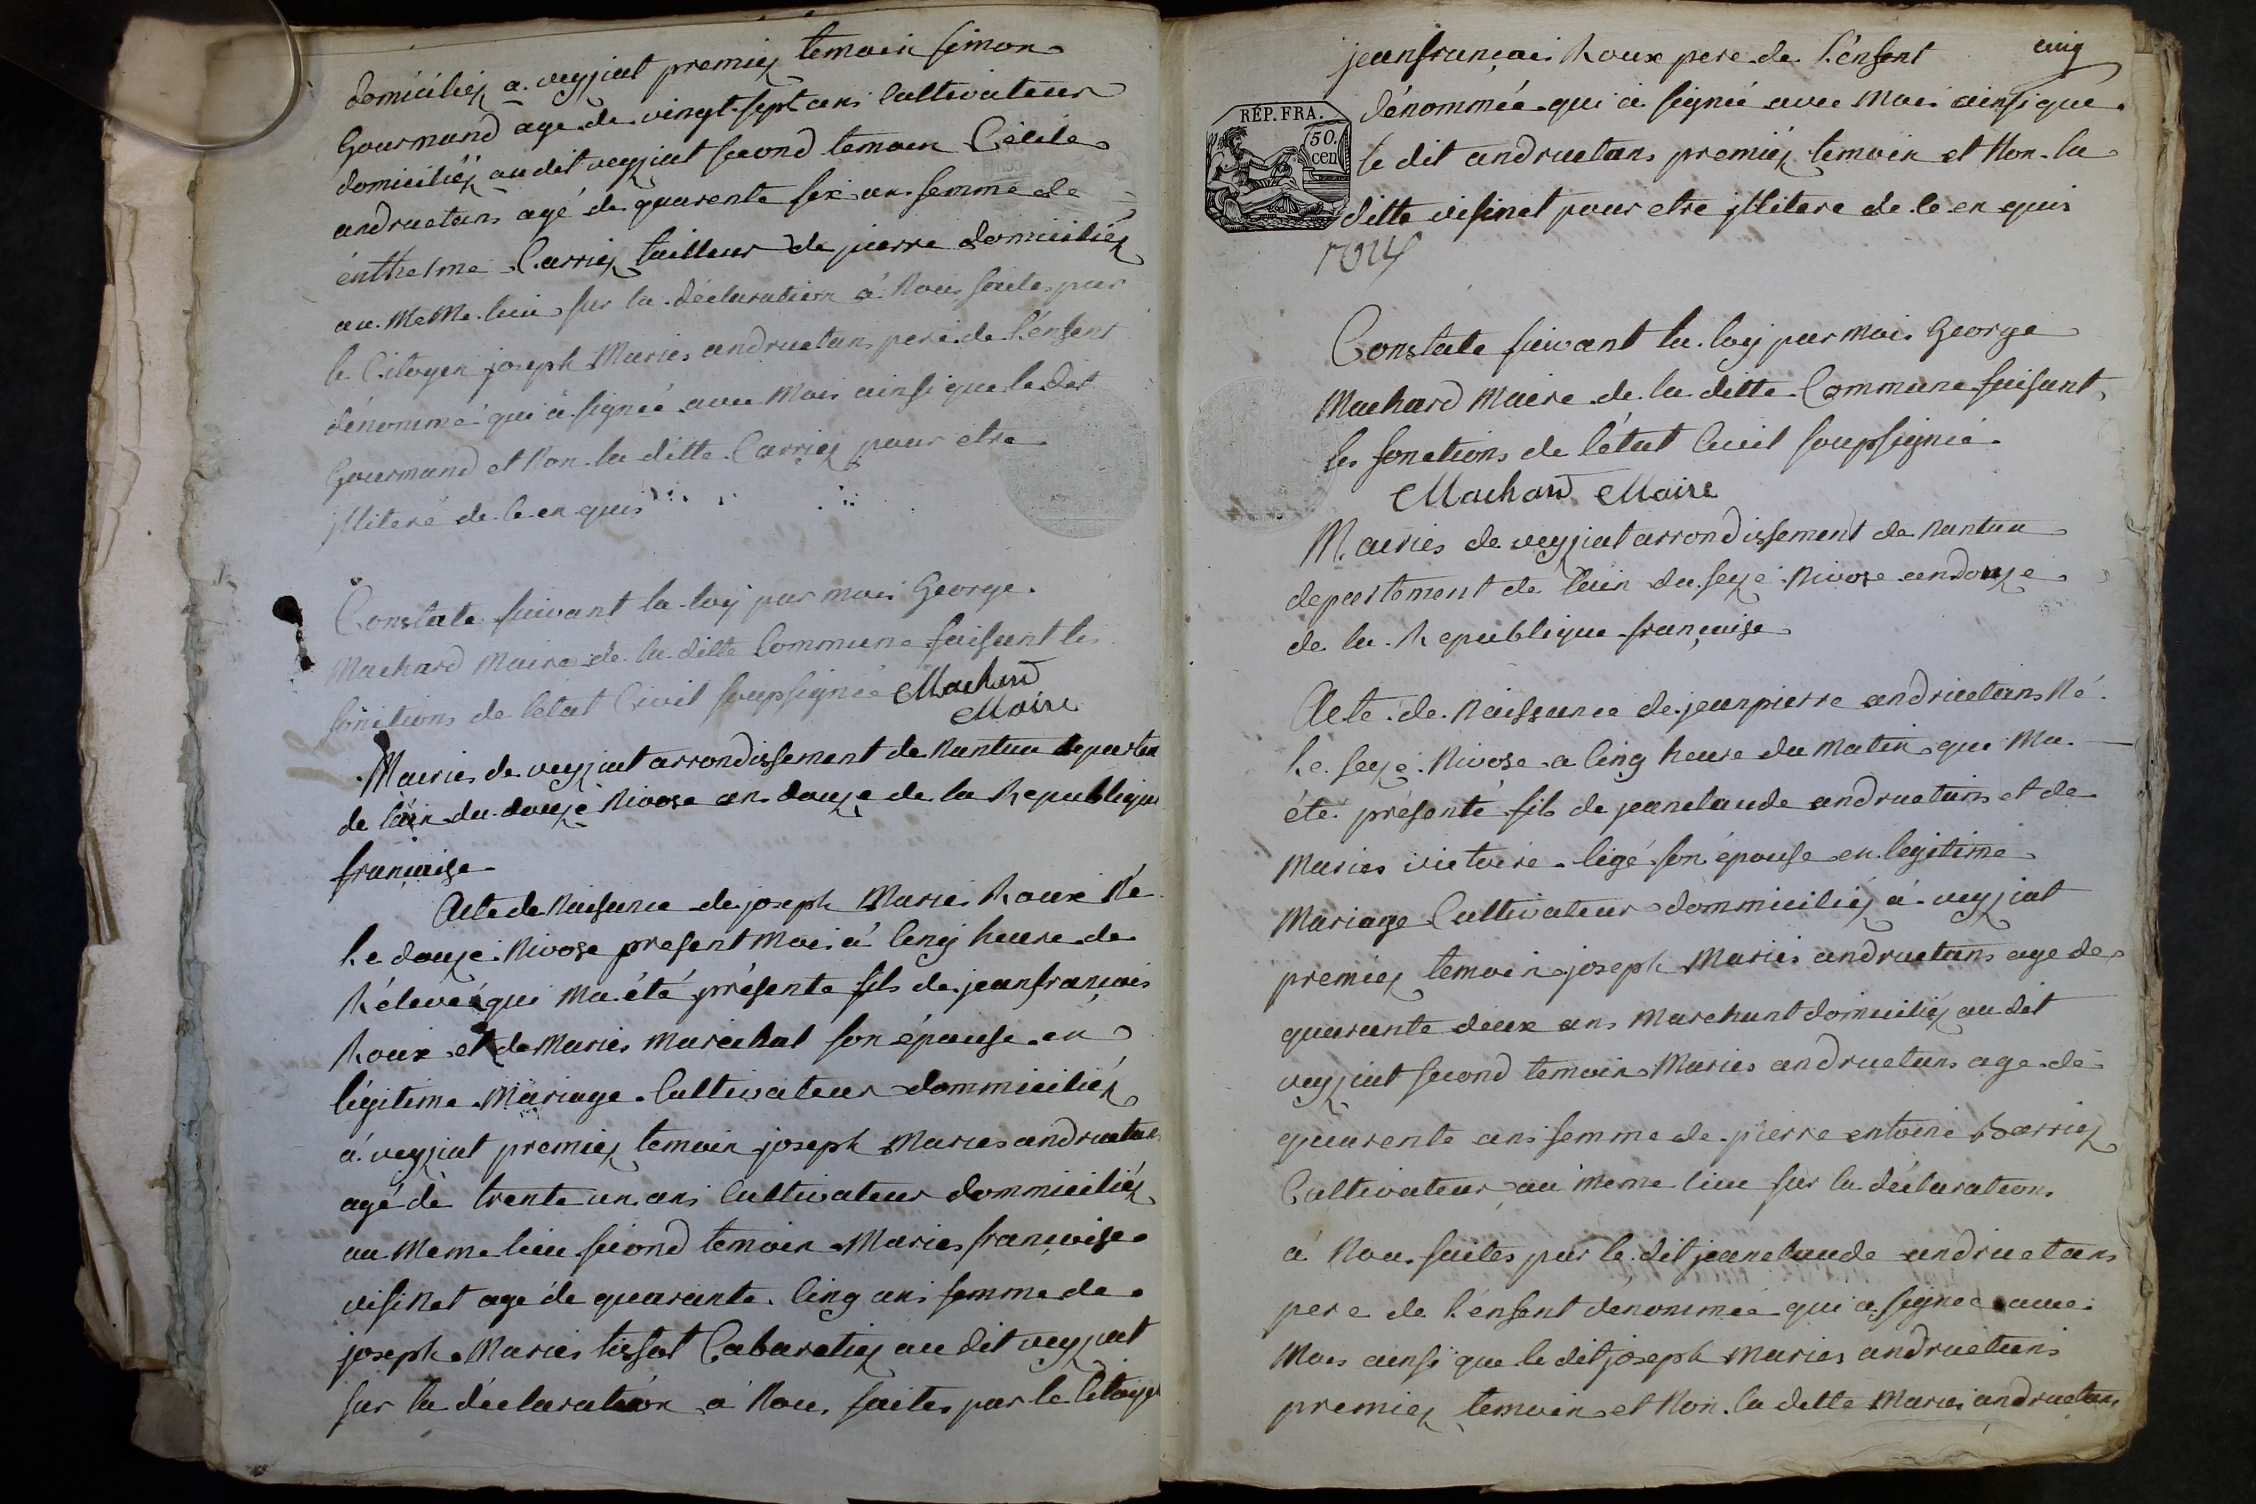 domiciliez a veyziat premiez temoin simon
Gourmand age de vingt sept ans Cultivateur
domiciliez audit veyziat second temoin Cécile
andruetans agé de quarente six ans femme de
énthelme Carriez tailleur de pierre domiciliez
au MeMe lieu sur la déclaration á Nous faites par
le Citoyen joseph Maries andruetans pere de l'énfent
dénommé qui á signeé avec Moi ainsi que le dit
Gourmand et Non la ditte Carriez pour etre
jlliteré de ce en quis
Constate suivant la loy par moi George
Machard Maire de la ditte Commune faisant les
fonctions de l'etat Civil soupsigneé Machard
Maire
Mairies de veyziat arrondissement de Nantua departem
de láin du douzé Nivose an douze de la Republique
françaize
Acte de Naisance de joseph Maries Roux Né
le douzé Nivose present Mois á cinq heure de
Rélevée qui Ma été présenté fils de jeanfrançois
Roux et de Maries Maréchal son épouse en
légitime Mariage Cultivateur dommiciliéz
á veyziat premiez temoin joseph Maries andruetans
agé dè trente un ans Cultivateur dommiciliéz
au Meme lieu second temoin Maries françoize
visiNet agé de quarante Cinq ans femme de
joseph Maries tissot Cabaretiez au dit veyziat
sur la déclaration á Nou, faites par le Citoyen
jeanfrançois Roux pere de l'énfent cinq
RÉP. FRA.
50.
cen
dénommée qui á signeé avec Moi ainsi que
le dit andruetans premiéz temoin et Non la
ditte visinet pour etre jllitere de ce en quis
roux
Constate suivant la loy par Moi George
Machard Maire de la ditte Commune faisant
les fonctions de l'état Civil soupsigneé
Machard Maire
Mairies de veyziat arrondissement de Nantua
departement de l'ain du sezé Nivose an douze
de la Republique françaize
Acte de Naissance de jeanpierre andruetans Né
le sezé Nivose a Cinq heure du Matin qui Ma
été présenté fils de jeanclaude andruetans et de
Maries victoire ligé son épouse en legitime
Mariage Cultivateur dommiciliéz á veyziat
premiez temoin joseph Maries andruetans age de
quarante deux ans Marchant domiciliéz au dit
veyziat second temoin Maries andruetans age de
quarente ans femme de pierre entoine Carriez
Cultivateur au meme lieu sur la déclaration
á Nou faites par le dit jeanclaude andruetans
pere de l'énfent dénommée qui a signeé avec
Mois ainsi que le dit joseph Maries andruetans
premiez temoin et Non la ditte Maries andruetans